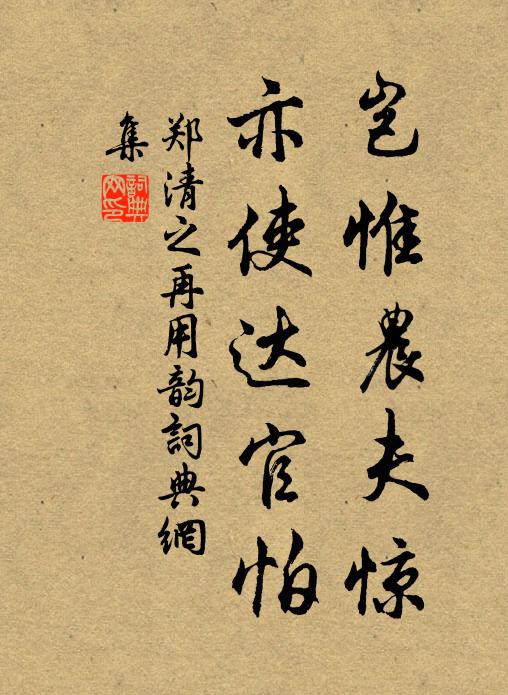 岂惟農夫惊
亦使达官怕
郑清之再用韵詞典網
集
詞典网印